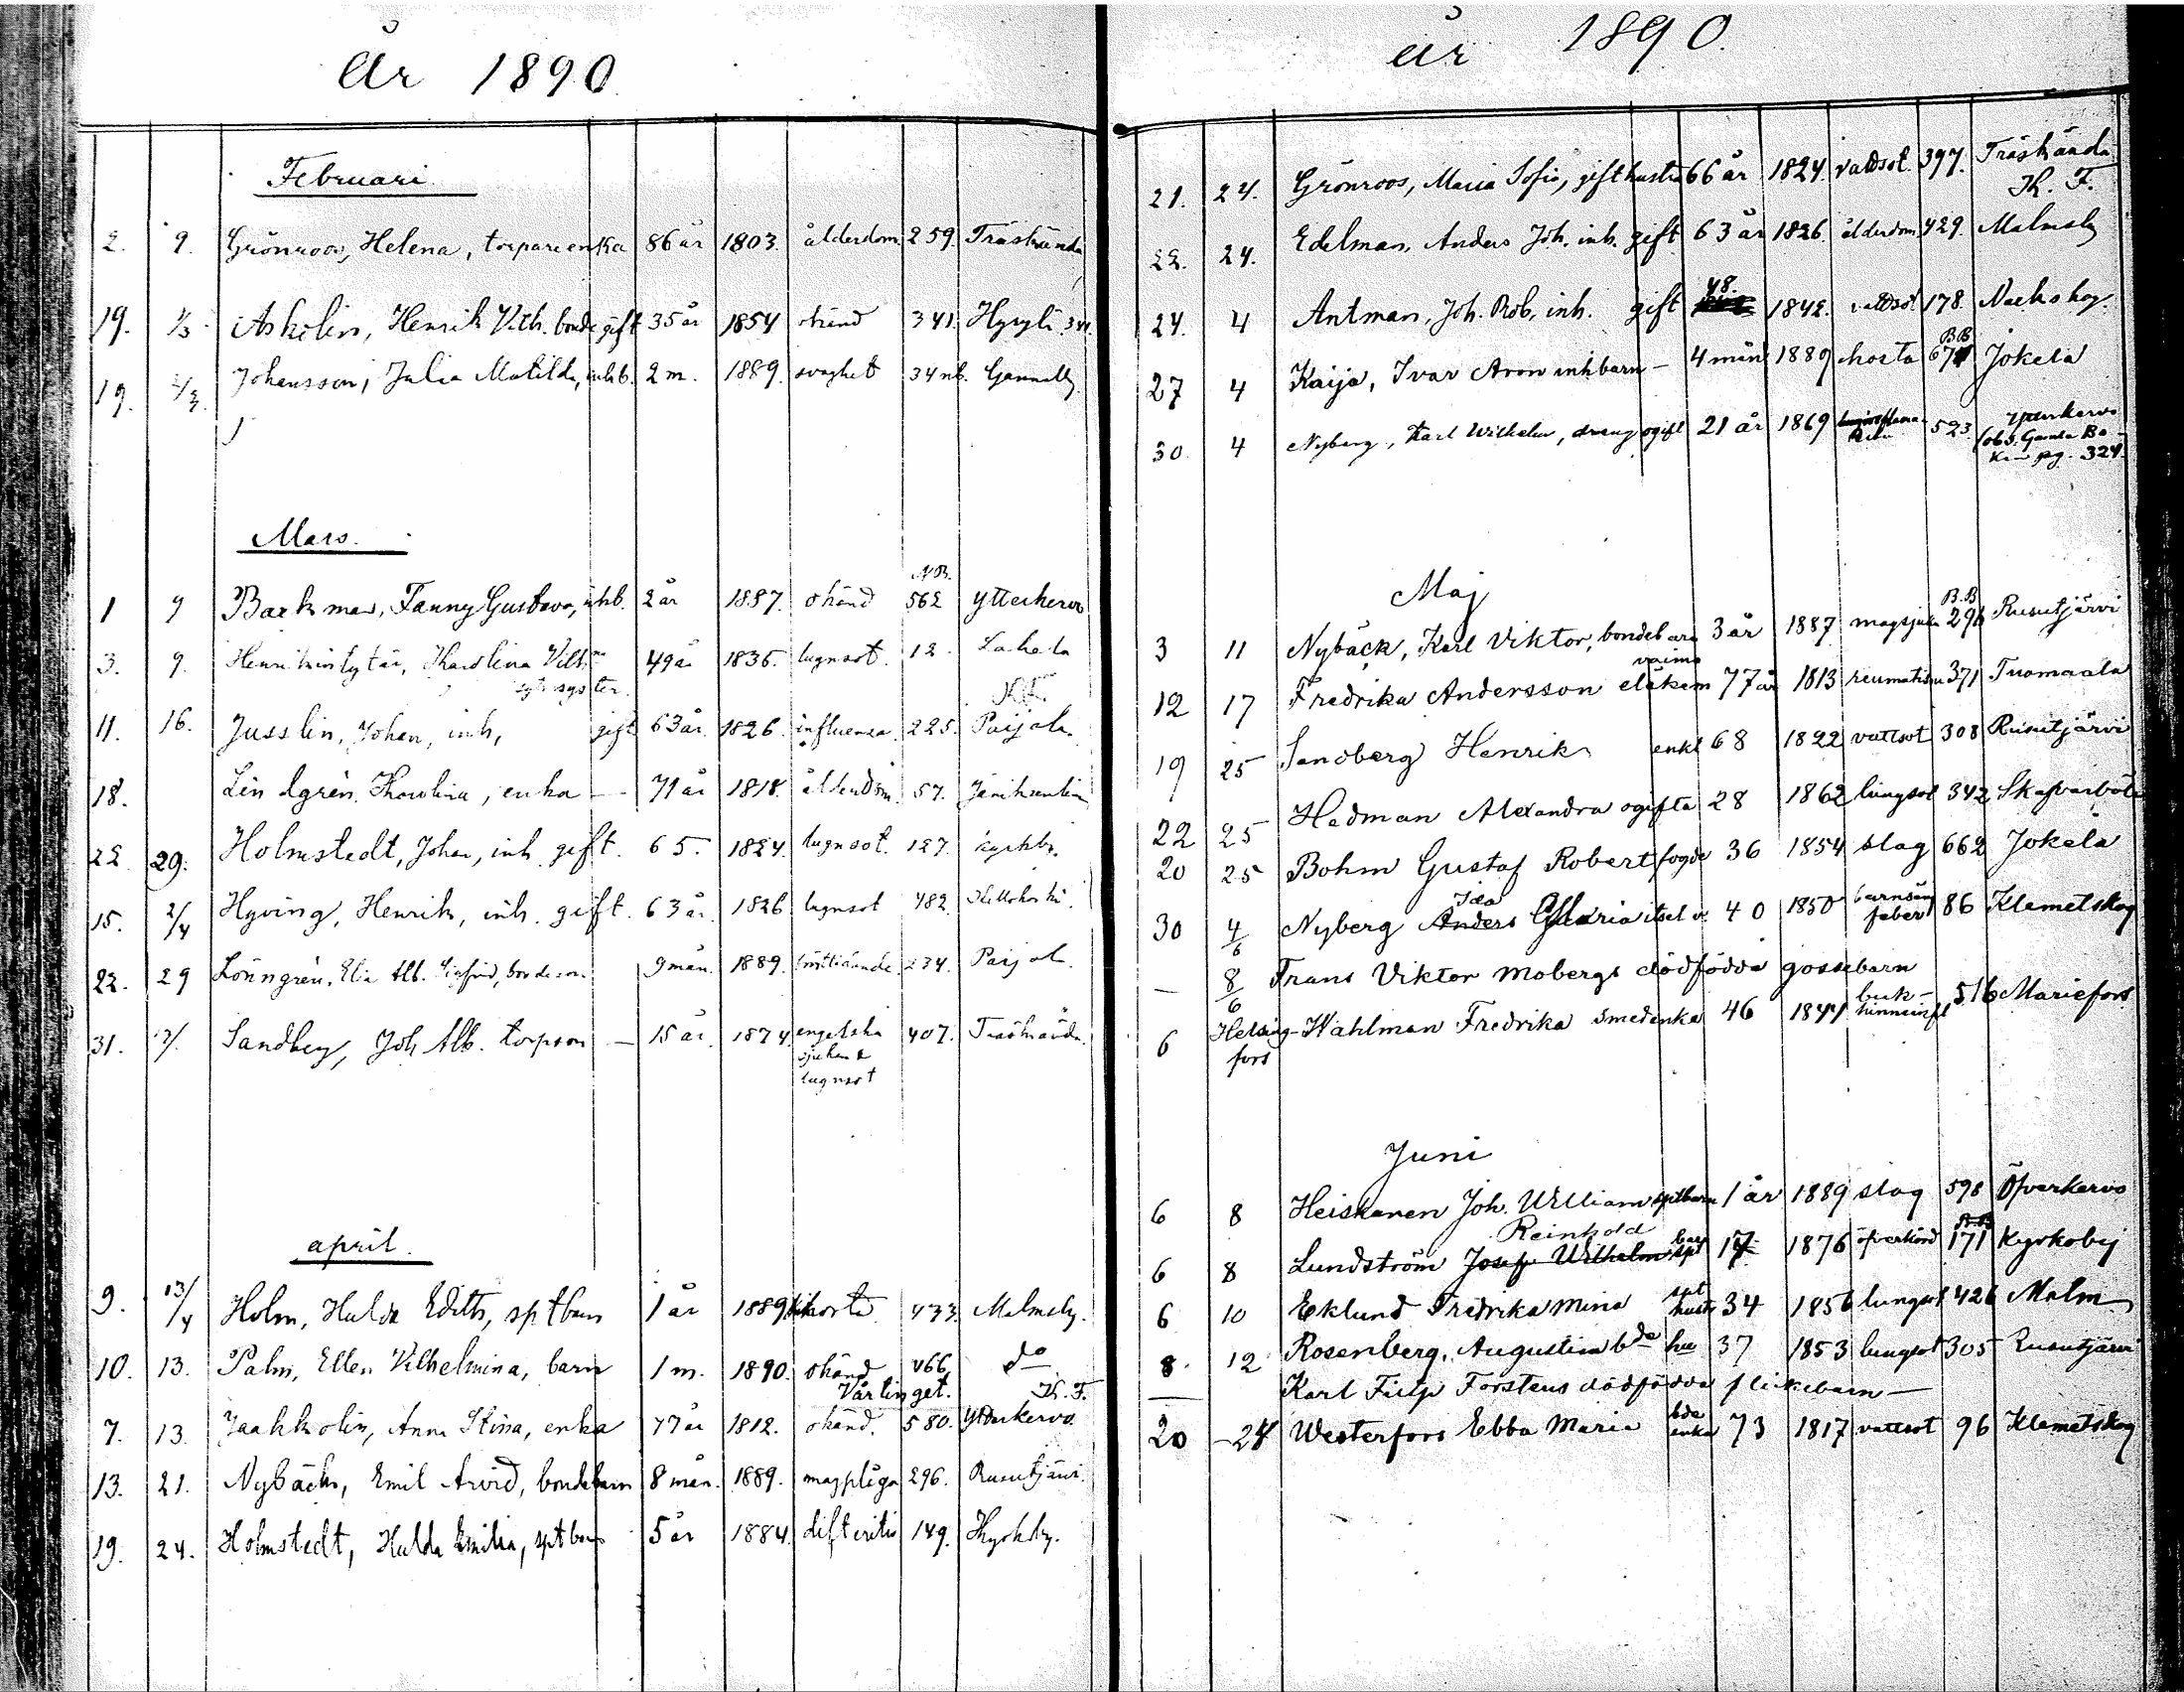 År 1890
Februari
2. 9. Grönroos, Helena, torpareenka 86 år 1803. ålderdom 259. Träskända
19. 1/3 Askolin, Henrik Vilh. bonde gift 35 år 1854 okänd 341. Hyrylä 341
19. 2/3 Johansson, Julia Matilda, inhb. 2 m. 1889. svaghet 34 nb. Gammelby
Mars.
N.B.
1 9 Backman, Fanny Gustava, inhb. 2 år 1887. okänd 562 Ytterkervo
3. 9. Henrikintytär, Karolina Vilh:na 49 år 1835. lugnsot. 12. Lahela
syster.
11. 16. Jusslin, Johan, inh, gift 63 år. 1826. influensa. 225. Paijala.
18. Lindgrén, Karolina, enka — 71 år 1818. ålderdom. 57. Jäniksenlinna
22 29. Holmstedt, Johan, inh. gift. 65. 1824. lugnsot. 127. kyrkby.
15. 2/4 Hyving, Henrik, inh. gift. 63 år. 1826 lugnsot 482. Kellokoski.
22. 29 Lönngrén, Elis Alb. bondeson 9 mån. 1889. 234. Paijala.
31. Sandberg, Joh Alb. torpson — 15 år. 1874 engelska 407. Träskända.
sjukan &
lugnsot
april.
9. 13/4 Holm, Hulda Edith, sptbarn 1 år 1889 kikhosta 433. Malmby.
10. 13. Palm, Ellen Vilhelmina, barn 1 m. 1890. okänd 466 do
Vårtinget. K. F.
7. 13. Jaakkolin, Anna Stina, enka 77 år 1812. okänd. 580. Ytterkervo
13. 21. Nybäck, Emil Arvid, bondebarn 8 mån. 1889. magplåga 296. Rusutjärvi.
19. 24. Holmstedt, Hulda Emilia, sptbarn 5 år 1884. difteritis 149. Kyrkby.
år 1890.
21. 24. Grönroos, Maria Sofia, gift hustru 66 år 1824. vattsot. 397. Träskända
K. F.
22. 24. Edelman, Anders Joh. inh. gift 63 år 1826. ålderdom 429. Malmby
48.
24. 4 Antman, Joh. Rob. inh. gift 1842. vattsot 178. Nackskog.
B.B
27 4 Kaija, Ivar Aron inhbarn — 4 mån 1889 hosta 671 Jokela
30. 4 Nyberg, Karl Wilhelm, dräng ogift 21 år 1869 523 Ytterkervo
(obs. Gamla Bo-
ken pg. 324.
Maj
B.B
3 11 Nybäck, Karl Viktor, bondebarn 3 år 1887 magsjuka 296 Rusutjärvi
vaimo
12 17 Fredrika Andersson eläkem 77 år 1813 reumatism 371 Tuomaala
19 25 Sandberg Henrik enkl 68 1822 vattsot 308 Rusutjärvi
22 25 Hedman Alexandra ogifta 28 1862 lungsot 342 Skafvarböle
20 25 Bohm Gustaf Robert fogde 36 1854 slag 662 Jokela
Ida
30 4/6 Nyberg Anders Maria itsel v. 40 1850 barnsäng 86 Klemetskog
feber
— 8/6 Frans Viktor Mobergs dödfödda gossebarn
6 Helsing- Wahlman Fredrika smedenka 46 1844 buk- 516 Mariefors
fors hinneinfl
Juni
6 8 Heiskanen Joh. William sptbarn 1 år 1889 slag 598 Öfverkervo
Reinhold
6 8 Lundström Josef Wilhelm spt 14 1876 öfverkörd 171 Kyrkoby
6 10 Eklund Fredrika Mina spt hustr 34 1856 lungsot 426 Malm
8 12 Rosenberg, Augustina bde hu 37 1853 lungsot 305 Rusutjärvi
— Karl Filip Forstens dödfödda flickebarn —
20 -24 Westerfors Ebba Maria bde enka 73 1817 vattsot 96 Klemetskog